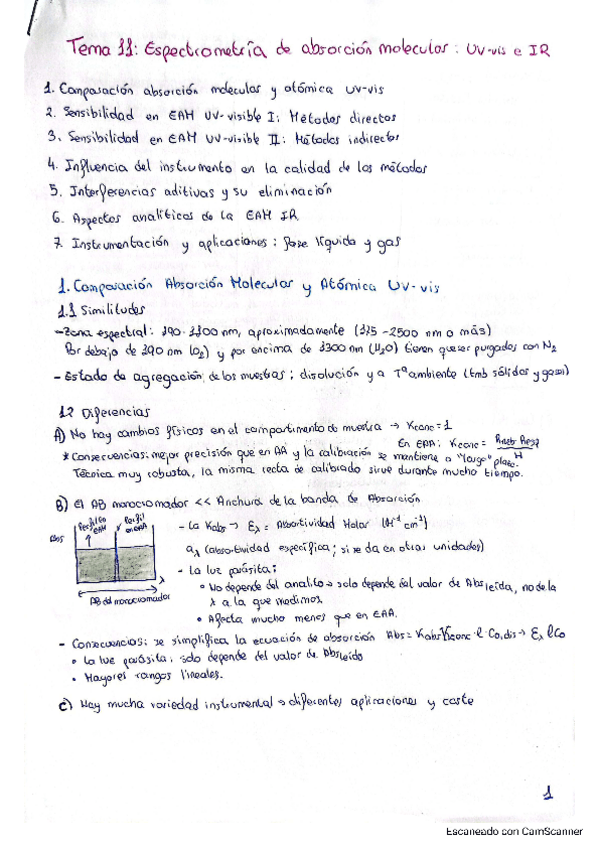 Tema 11: Espectrometría de absorción molecular: UV-vis e IR
1. Comparación absorción molecular y atómica UV-vis
2. Sensibilidad en EAM UV-visible I: Métodos directos
3. Sensibilidad en EAM UV-visible II: Métodos indirectos
4. Influencia del instrumento en la calidad de los métodos
5. Interferencias aditivas y su eliminación
6. Aspectos analíticos de la EAM IR
7. Instrumentación y aplicaciones: fase líquida y gas
1. Comparación Absorción Molecular y Atómica UV-vis
1.1 Similitudes
- Zona espectral: 190-1100 nm, aproximadamente (175-2500 nm o más)
Por debajo de 190 nm (O₂) y por encima de 1300 nm (H₂O) tienen que ser purgados con N₂
- Estado de agregación de las muestras: disolución y a Tª ambiente (tmb sólidos y gases)
1.2 Diferencias
A) No hay cambios físicos en el compartimento de muestra → Kconc = 1
En EAA: Kconc =
* Consecuencias: mejor precisión que en AA y la calibración se mantiene a "largo" plazo.
Técnica muy robusta, la misma recta de calibrado sirve durante mucho tiempo.
B) El AB monocromador << Anchura de la banda de Absorción
Abs
Perfil EAM
Perfil en EAA
λ
AB del monocromador
- La Kabs → Ελ = Absortividad Molar (M⁻¹ cm⁻¹)
aλ (absortividad específica; si se da en otras unidades)
- La luz parásita:
• No depende del analito → solo depende del valor de Abs leída, no de la
λ a la que medimos.
• Afecta mucho menos que en EAA.
- Consecuencias: se simplifica la ecuación de absorción Abs = Kabs Kconc · l · Co,dis → Ελ l Co
• La luz parásita, solo depende del valor de Abs leído
• Mayores rangos lineales.
C) Hay mucha variedad instrumental → diferentes aplicaciones y coste
1
Escaneado con CamScanner